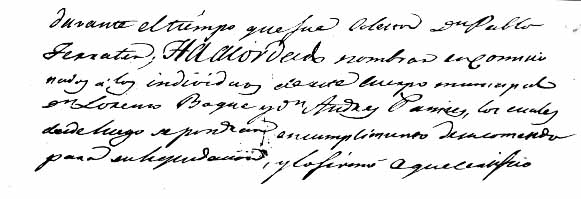 durante el tiempo que fue Dn Pablo
Ferrater; Ha acordado nombrar en comicio
nados a los individuos de este cuerpo municipal
Dn Lorenzo Baque y Dn Andres Pamies, los cuales
desde luego se pondran en cumplimiento de su cometido
para su liquidacion, y lo firmó a que certifico